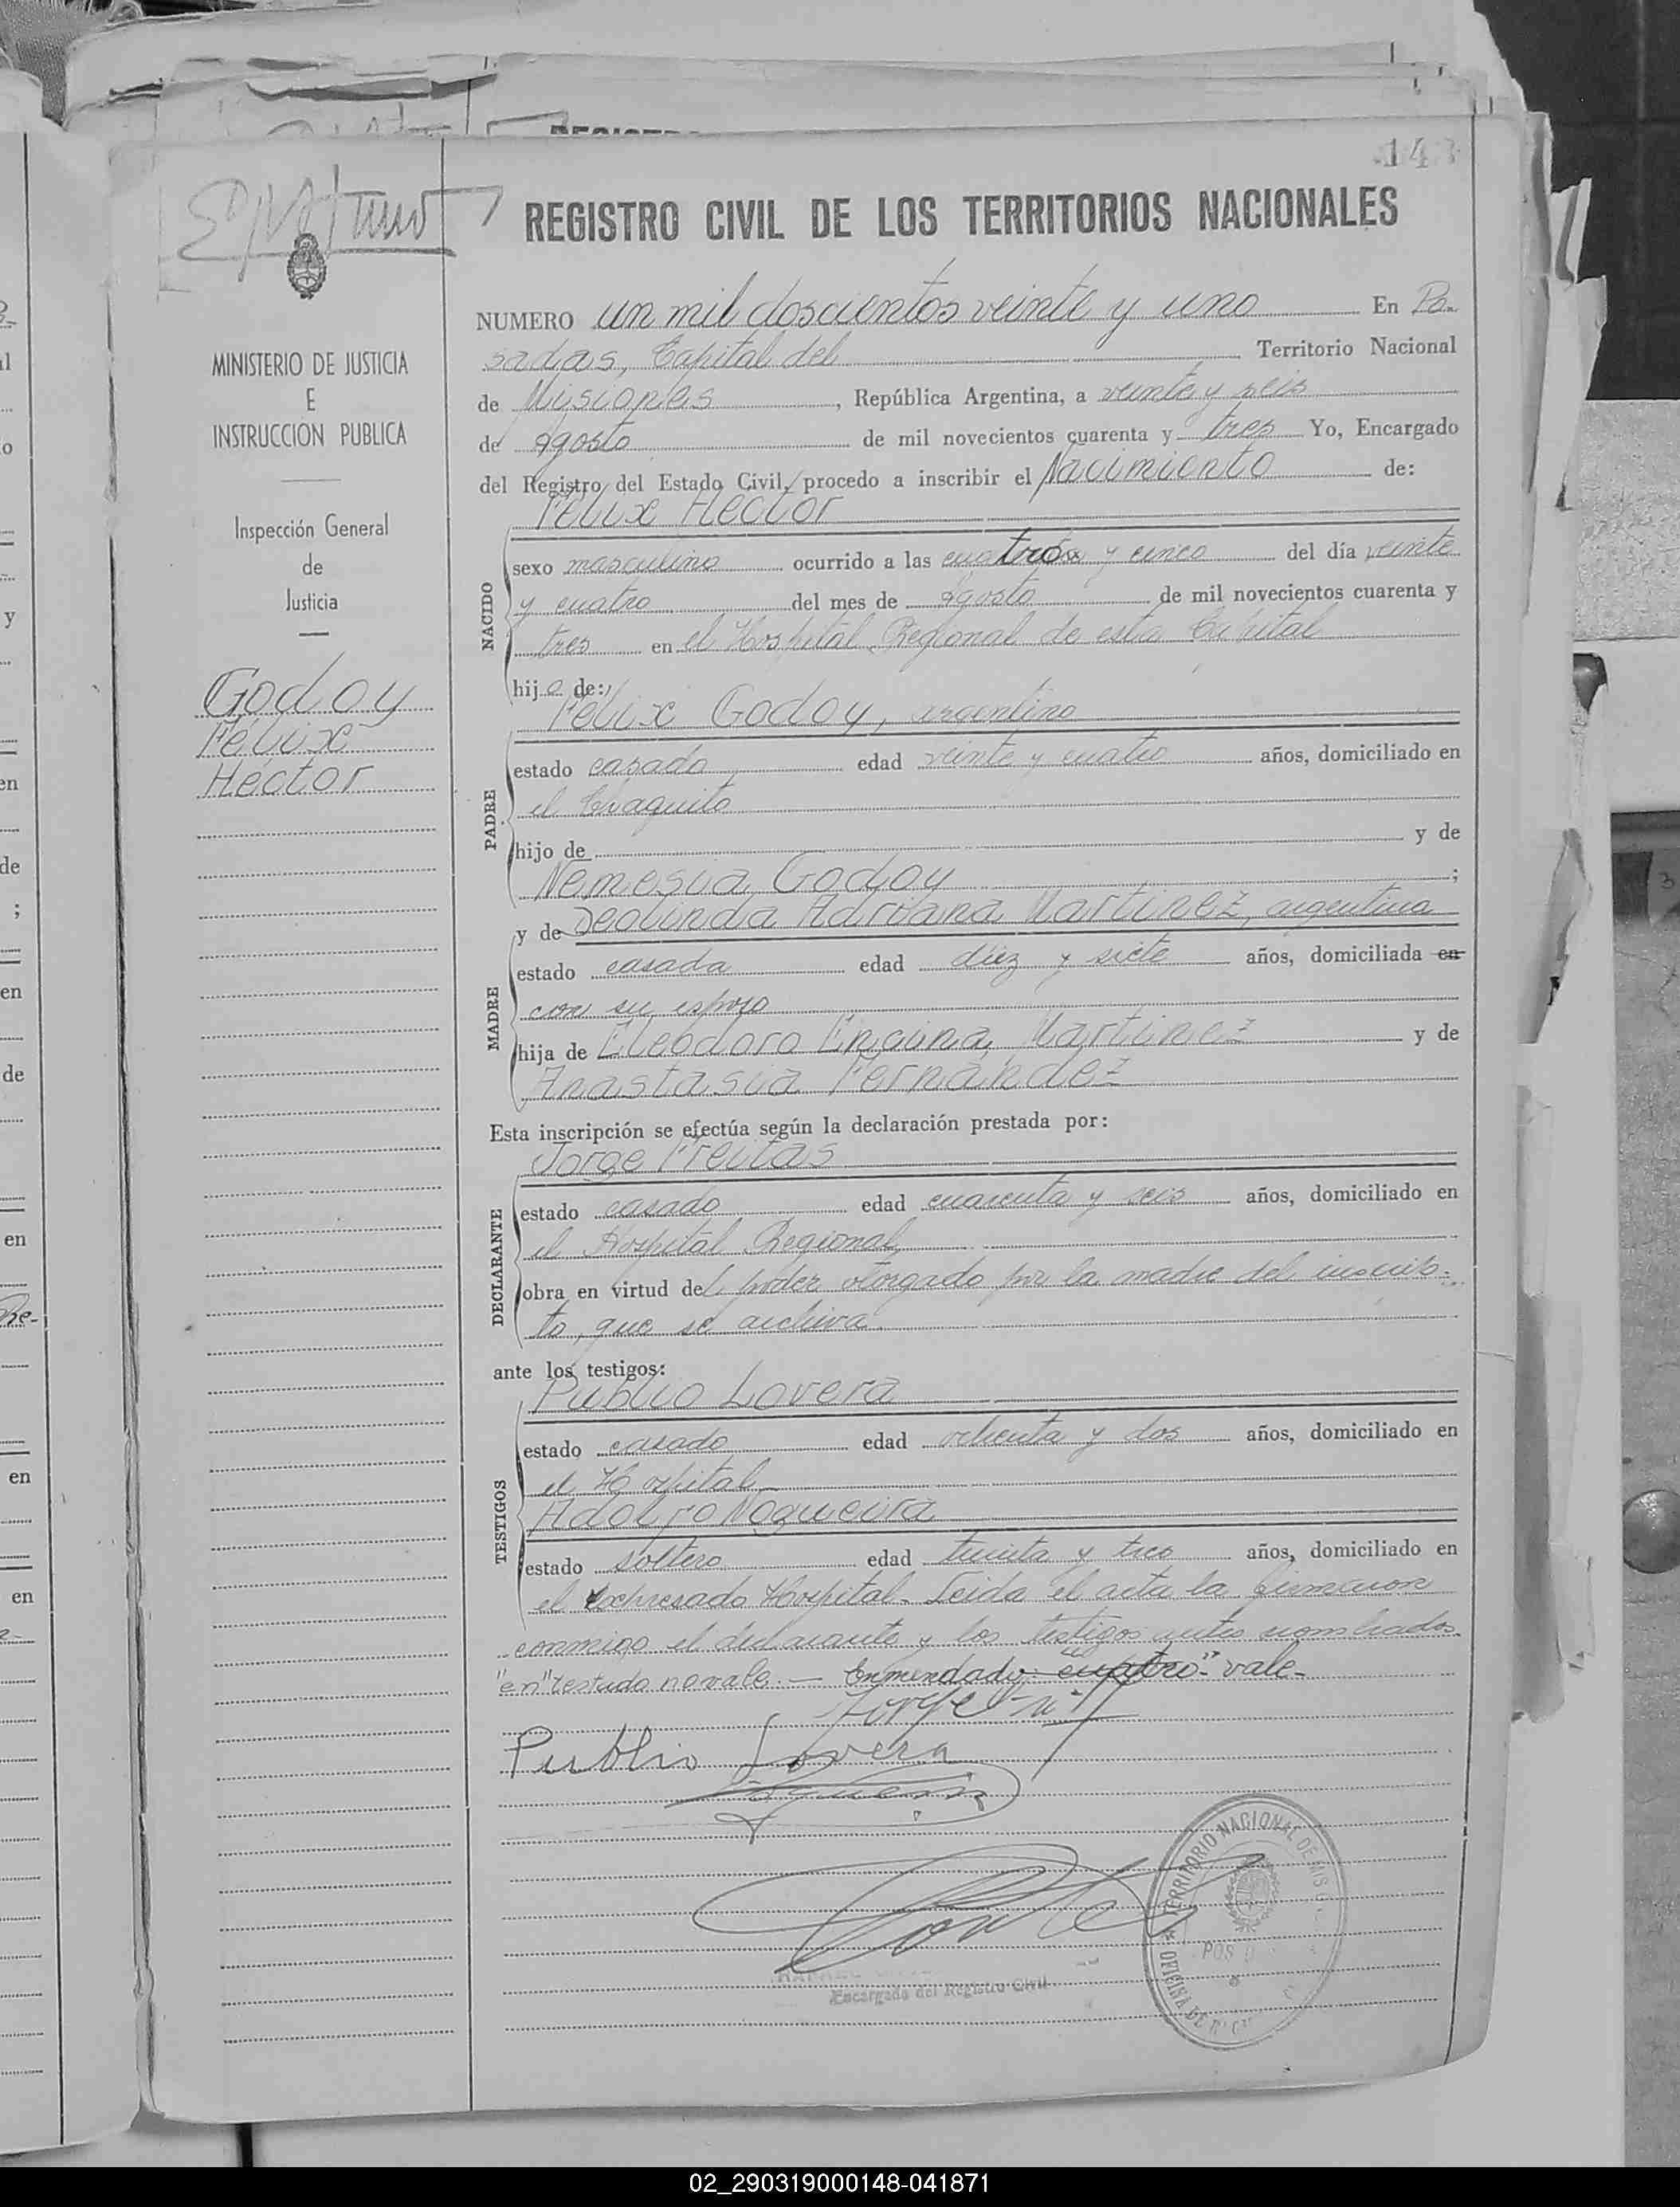 143
REGISTRO CIVIL DE LOS TERRITORIOS NACIONALES
MINISTERIO DE JUSTICIA
E
INSTRUCCION PUBLICA
Inspección General
de
Justicia
Godoy
Félix
Héctor
NUMERO un mil doscientos veinte y uno En Po-
sadas, Capital del Territorio Nacional
de Misiones, República Argentina, a veinte y seis
de agosto de mil novecientos cuarenta y tres Yo, Encargado
del Registro del Estado Civil, procedo a inscribir el Nacimiento de:
NACIDO
Félix Héctor
sexo masculino ocurrido a las cuatro y cinco del día veinte
y cuatro del mes de agosto de mil novecientos cuarenta y
tres en el Hospital Regional de esta Capital
hijo de:
PADRE
Félix Godoy, argentino
estado casado edad veinte y cuatro años, domiciliado en
el Chaquito
hijo de y de
Nemesia Godoy ;
MADRE
y de Deolinda Adriana Martinez, argentina
estado casada edad diez y siete años, domiciliada en
con su esposo
hija de Eleodoro Encina Martinez y de
Anastasia Fernández
Esta inscripción se efectúa según la declaración prestada por:
DECLARANTE
Jorge Freitas
estado casado edad cuarenta y seis años, domiciliado en
el Hospital Regional
obra en virtud del poder otorgado por la madre del inscrip-
to, que se archiva.
ante los testigos:
TESTIGOS
Publio Lovera
estado casado edad ochenta y dos años, domiciliado en
el Hospital
Adolfo Nogueira
estado soltero edad treinta y tres años, domiciliado en
el expresado Hospital. Leida el acta la firmaron
conmigo el declarante y los testigos antes nombrados.
"en" testado no vale. — Enmendado: "cuatro" vale-
Jorge
Publio Lovera
Encargado del Registro Civil
TERRITORIO NACIONAL DE MIS
OFICINA DE
02_290319000148-041871